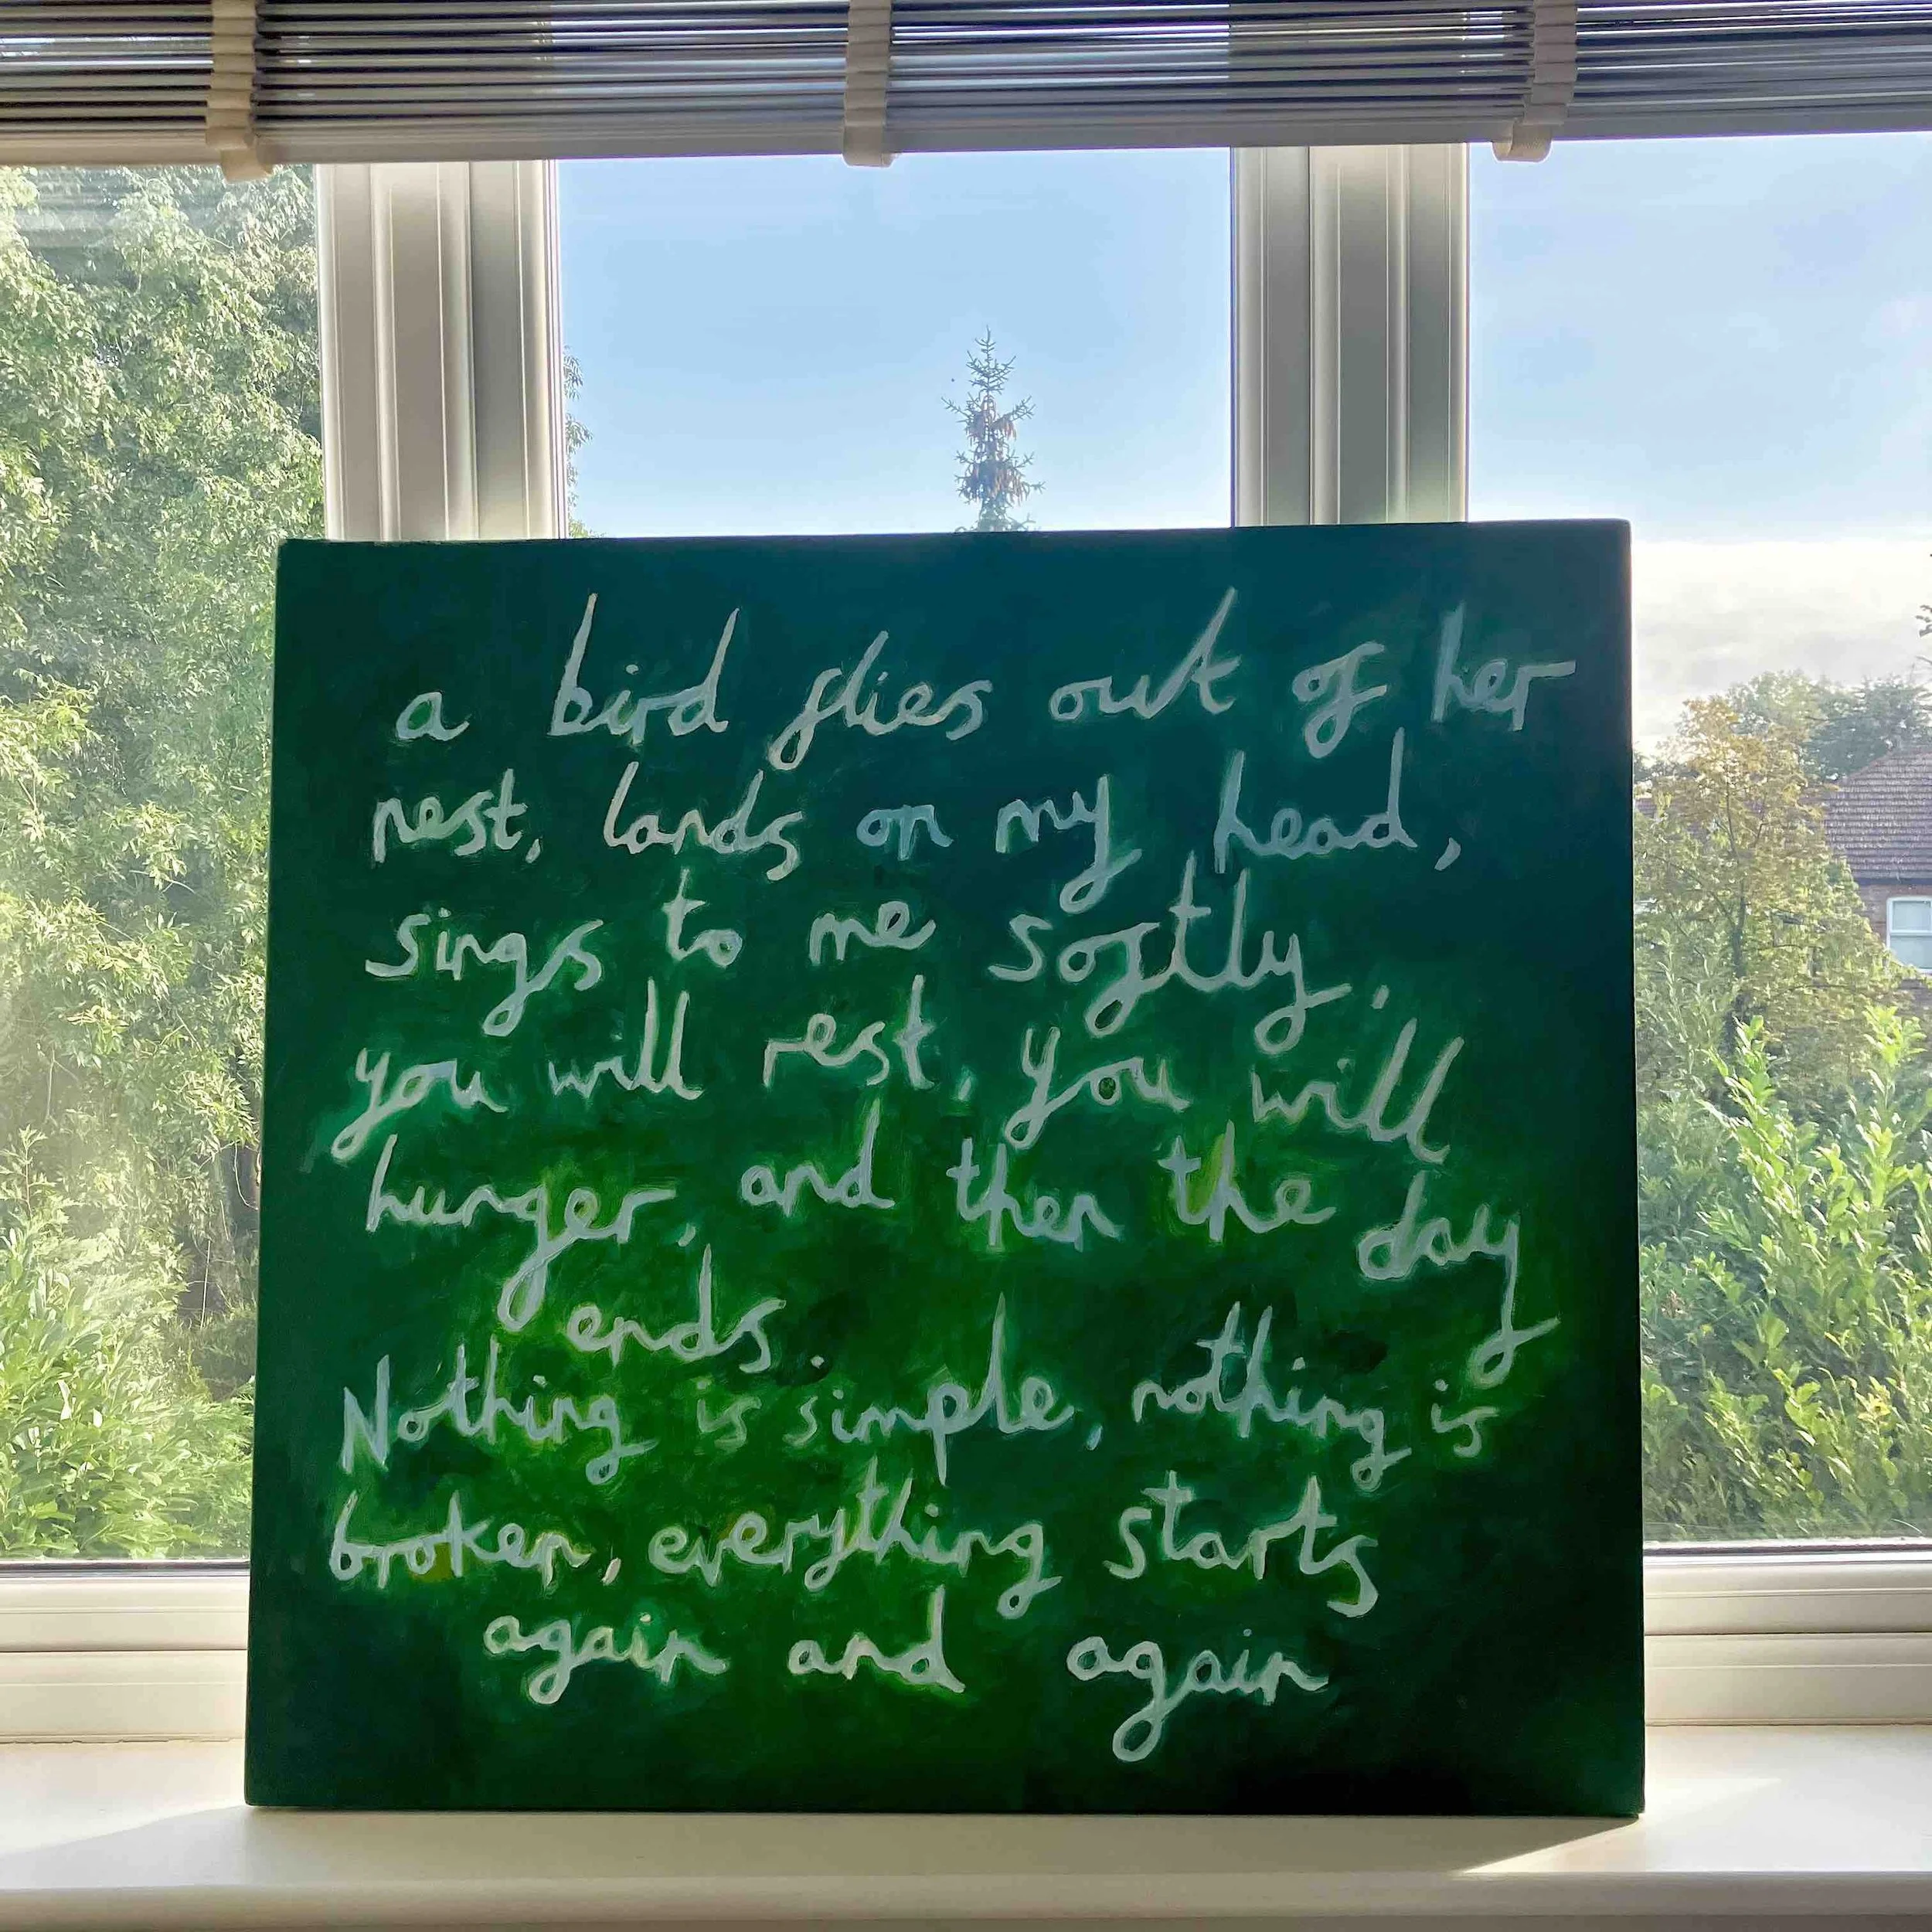 a bird flies out of her
nest, lands on my head,
sings to me softly.
you will rest, you will
hunger, and then the day
ends.
Nothing is simple, nothing is
broken, everything starts
again and again